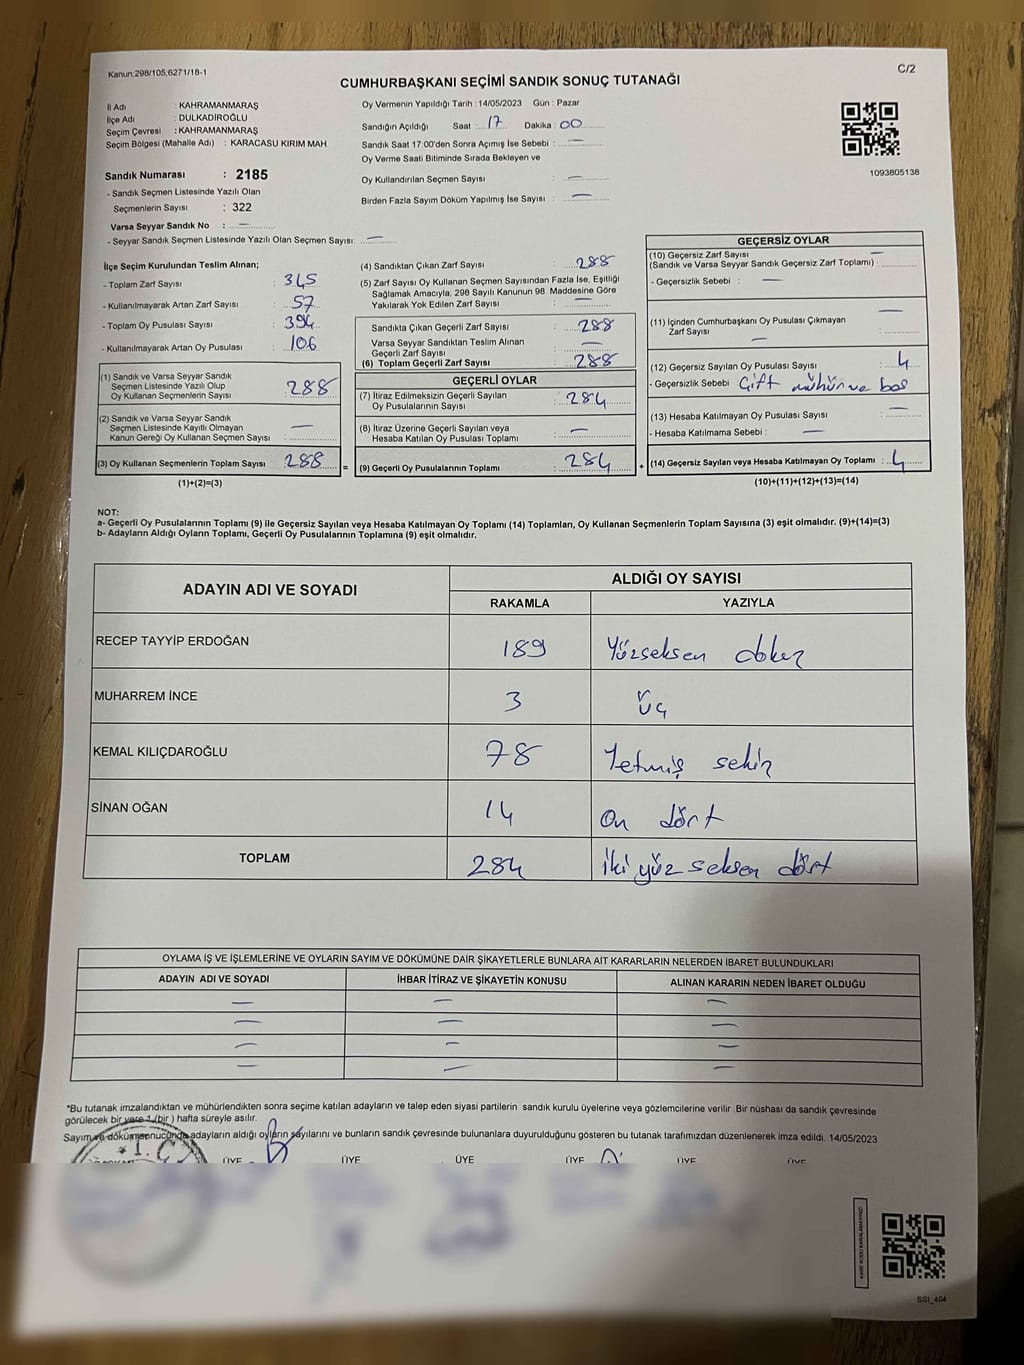 Kanun:298/105;6271/18-1
C/2
CUMHURBAŞKANI SEÇİMİ SANDIK SONUÇ TUTANAĞI
İl Adı : KAHRAMANMARAŞ
İlçe Adı : DULKADİROĞLU
Seçim Çevresi : KAHRAMANMARAŞ
Seçim Bölgesi (Mahalle Adı) : KARACASU KIRIM MAH
Sandık Numarası : 2185
- Sandık Seçmen Listesinde Yazılı Olan
Seçmenlerin Sayısı : 322
Varsa Seyyar Sandık No : —
- Seyyar Sandık Seçmen Listesinde Yazılı Olan Seçmen Sayısı: —
Oy Vermenin Yapıldığı Tarih : 14/05/2023 Gün : Pazar
Sandığın Açıldığı Saat : 17 Dakika : 00
Sandık Saat 17:00'den Sonra Açımış İse Sebebi : —
Oy Verme Saati Bitiminde Sırada Bekleyen ve
Oy Kullandırılan Seçmen Sayısı : —
Birden Fazla Sayım Döküm Yapılmış İse Sayısı : —
1093805138
İlçe Seçim Kurulundan Teslim Alınan;
- Toplam Zarf Sayısı : 345
- Kullanılmayarak Artan Zarf Sayısı : 57
- Toplam Oy Pusulası Sayısı : 394
- Kullanılmayarak Artan Oy Pusulası : 106
(1) Sandık ve Varsa Seyyar Sandık
Seçmen Listesinde Yazılı Olup
Oy Kullanan Seçmenlerin Sayısı : 288
(2) Sandık ve Varsa Seyyar Sandık
Seçmen Listesinde Kayıtlı Olmayan
Kanun Gereği Oy Kullanan Seçmen Sayısı : —
(3) Oy Kullanan Seçmenlerin Toplam Sayısı : 288
(1)+(2)=(3)
(4) Sandıktan Çıkan Zarf Sayısı : 288
(5) Zarf Sayısı Oy Kullanan Seçmen Sayısından Fazla İse, Eşitliği
Sağlamak Amacıyla; 298 Sayılı Kanunun 98. Maddesine Göre
Yakılarak Yok Edilen Zarf Sayısı : —
Sandıkta Çıkan Geçerli Zarf Sayısı : 288
Varsa Seyyar Sandıktan Teslim Alınan
Geçerli Zarf Sayısı : —
(6) Toplam Geçerli Zarf Sayısı : 288
GEÇERLİ OYLAR
(7) İtiraz Edilmeksizin Geçerli Sayılan
Oy Pusulalarının Sayısı : 284
(8) İtiraz Üzerine Geçerli Sayılan veya
Hesaba Katılan Oy Pusulası Toplamı : —
= (9) Geçerli Oy Pusulalarının Toplamı : 284 +
GEÇERSİZ OYLAR
(10) Geçersiz Zarf Sayısı —
(Sandık ve Varsa Seyyar Sandık Geçersiz Zarf Toplamı) :
- Geçersizlik Sebebi : —
(11) İçinden Cumhurbaşkanı Oy Pusulası Çıkmayan —
Zarf Sayısı :
(12) Geçersiz Sayılan Oy Pusulası Sayısı : 4
- Geçersizlik Sebebi : Çift mühür ve boş
(13) Hesaba Katılmayan Oy Pusulası Sayısı : —
- Hesaba Katılmama Sebebi : —
(14) Geçersiz Sayılan veya Hesaba Katılmayan Oy Toplamı : 4
(10)+(11)+(12)+(13)=(14)
NOT:
a- Geçerli Oy Pusulalarının Toplamı (9) ile Geçersiz Sayılan veya Hesaba Katılmayan Oy Toplamı (14) Toplamları, Oy Kullanan Seçmenlerin Toplam Sayısına (3) eşit olmalıdır. (9)+(14)=(3)
b- Adayların Aldığı Oyların Toplamı, Geçerli Oy Pusulalarının Toplamına (9) eşit olmalıdır.
ADAYIN ADI VE SOYADI
ALDIĞI OY SAYISI
RAKAMLA YAZIYLA
RECEP TAYYİP ERDOĞAN 189 Yüzseksen dokuz
MUHARREM İNCE 3 Üç
KEMAL KILIÇDAROĞLU 78 Yetmiş sekiz
SİNAN OĞAN 14 On dört
TOPLAM 284 İki yüz seksen dört
OYLAMA İŞ VE İŞLEMLERİNE VE OYLARIN SAYIM VE DÖKÜMÜNE DAİR ŞİKAYETLERLE BUNLARA AİT KARARLARIN NELERDEN İBARET BULUNDUKLARI
ADAYIN ADI VE SOYADI İHBAR İTİRAZ VE ŞİKAYETİN KONUSU ALINAN KARARIN NEDEN İBARET OLDUĞU
— — —
— — —
— — —
— — —
*Bu tutanak imzalandıktan ve mühürlendikten sonra seçime katılan adayların ve talep eden siyasi partilerin sandık kurulu üyelerine veya gözlemcilerine verilir .Bir nüshası da sandık çevresinde
görülecek bir yere 1 (bir ) hafta süreyle asılır.
Sayım ve döküm sonucunda adayların aldığı oyların sayılarını ve bunların sandık çevresinde bulunanlara duyurulduğunu gösteren bu tutanak tarafımızdan düzenlenerek imza edildi. 14/05/2023
T.C
ÜYE ÜYE ÜYE ÜYE ÜYE ÜYE
SSI_404